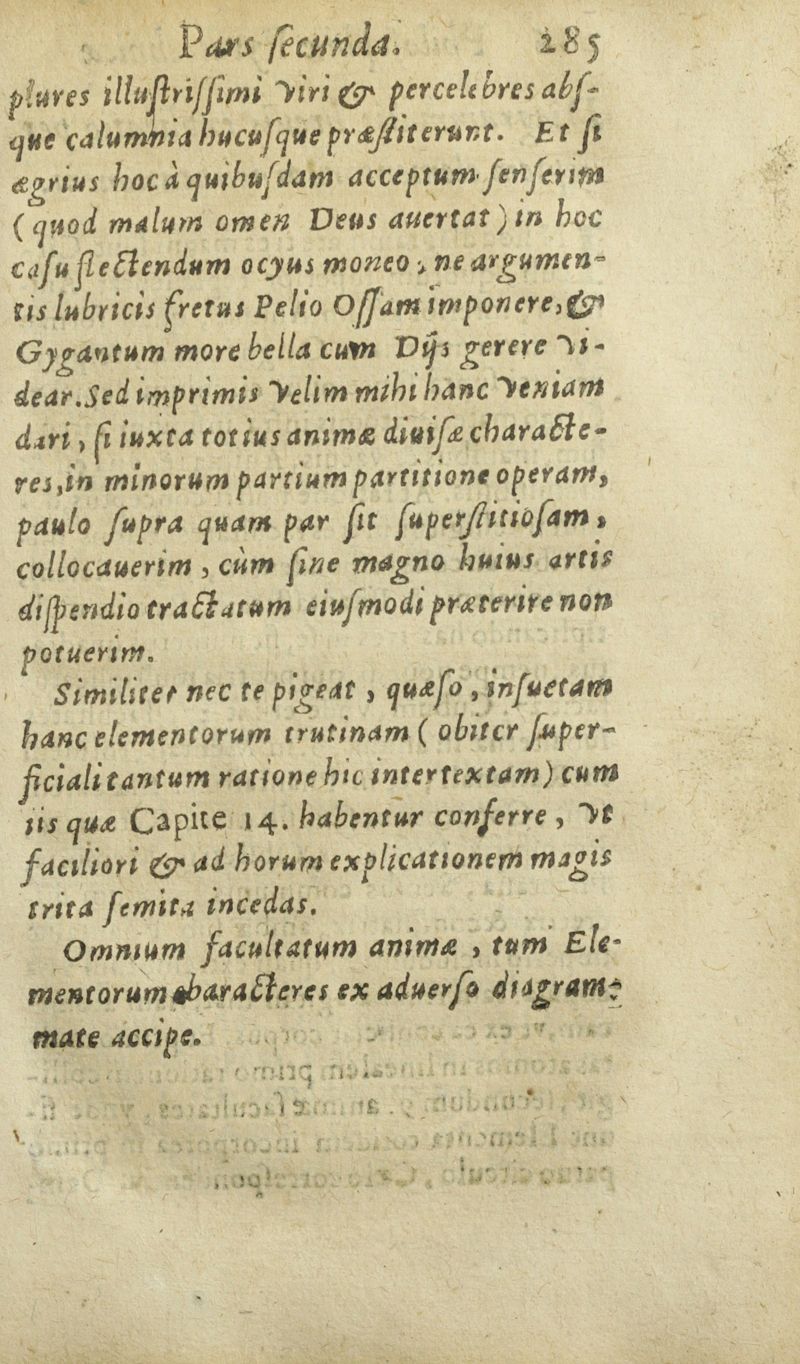 Pars ſecunda. 285
plures illuſtriſſimi viri & percelebres abſ-
que calumnia hucuſque præſtiterunt. Et ſi
ægrius hoc à quibuſdam acceptum ſenſerim
(quod malum omen Deus auertat) in hoc
caſu flectendum ocyus moneo, ne argumen-
tis lubricis fretus Pelio Oſſam imponere, &
Gygantum more bella cum Dijs gerere vi-
dear. Sed imprimis velim mihi hanc veniam
dari, ſi iuxta totius animæ diuiſæ characte-
res, in minorum partium partitione operam,
paulo ſupra quam par ſit ſuperſtitioſam,
collocauerim, cùm ſine magno huius artis
diſpendio tractatum eiuſmodi præterire non
potuerim.
Similiter nec te pigeat, quæſo, inſuetam
hanc elementorum trutinam (obiter ſuper-
ficiali tantum ratione hic intertextam) cum
iis quæ Capite 14. habentur conferre, vt
faciliori & ad horum explicationem magis
trita ſemita incedas.
Omnium facultatum animæ, tum Ele-
mentorum characteres ex aduerſo diagram-
mate accipe.